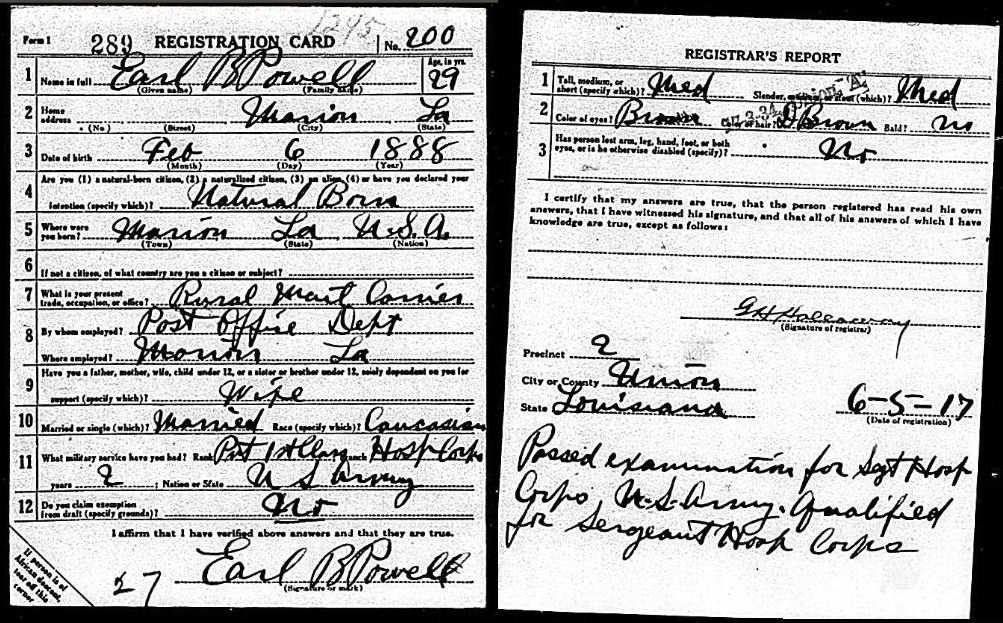 1295
Form 1 289 REGISTRATION CARD No. 200
1 Name in full Earl B Powell Age, in yrs. 29
(Given name) (Family name)
2 Home address Marion La
(No.) (Street) (City) (State)
3 Date of birth Feb 6 1888
(Month) (Day) (Year)
4 Are you (1) a natural-born citizen, (2) a naturalized citizen, (3) an alien, (4) or have you declared your
intention (specify which)? Natural Born
5 Where were you born? Marion La U.S.A.
(Town) (State) (Nation)
6 If not a citizen, of what country are you a citizen or subject?
7 What is your present trade, occupation, or office? Rural Mail Carrier
8 By whom employed? Post Office Dept
Where employed? Marion La
9 Have you a father, mother, wife, child under 12, or a sister or brother under 12, solely dependent on you for
support (specify which)? Wife
10 Married or single (which)? Married Race (specify which)? Caucasian
11 What military service have you had? Rank Pvt 1st Class branch Hosp Corps
years 2 ; Nation or State U S Army
12 Do you claim exemption from draft (specify grounds)? No
I affirm that I have verified above answers and that they are true.
27 Earl B Powell
(Signature or mark)
If person is of
African descent,
tear off this
corner
REGISTRAR'S REPORT
1 Tall, medium, or short (specify which)? Med Slender, medium, or stout (which)? Med
2 Color of eyes? Brown Color of hair? D Brown Bald? no
3 Has person lost arm, leg, hand, foot, or both
eyes, or is he otherwise disabled (specify)? No
I certify that my answers are true, that the person registered has read his own
answers, that I have witnessed his signature, and that all of his answers of which I have
knowledge are true, except as follows:
GH Hollaway
(Signature of registrar)
Precinct 2
City or County Union
State Louisiana 6-5-17
(Date of registration)
Passed examination for Sgt Hosp
Corps, U.S. Army. Qualified
for Sergeant Hosp Corps